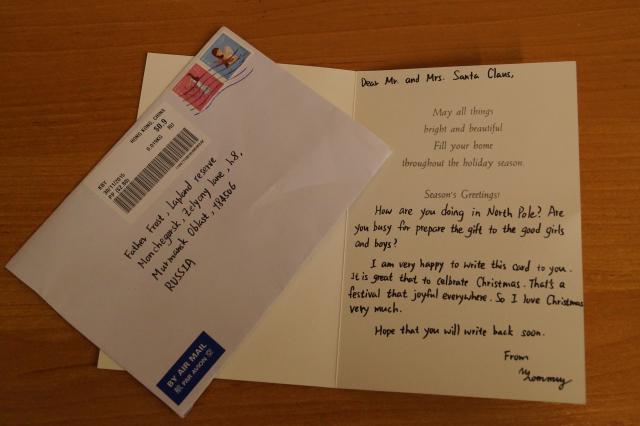 HONG KONG, CHINA
$0.9
0.010KG RU
KBY
30/11/2015
PP ($2.80)
Father Frost, Lapland reserve
Monchegorsk, Zelyony lane, h8,
Murmansk Oblast, 184506
RUSSIA
BY AIR MAIL
PAR AVION 空
Dear Mr. and Mrs. Santa Claus,
May all things
bright and beautiful
Fill your home
throughout the holiday season.
Season's Greetings!
How are you doing in North Pole? Are
you busy for prepare the gift to the good girls
and boys?
I am very happy to write this card to you.
It is great that to celbrate Christmas. That's a
festival that joyful everywhere. So I love Christmas
very much.
Hope that you will write back soon.
From
Tommy